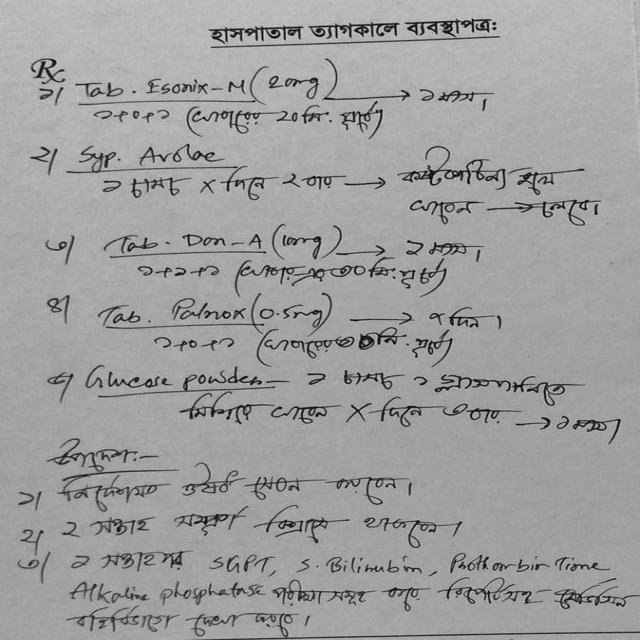 হাসপাতাল ত্যাগকালে ব্যবস্থাপত্র:
Rx
১| Tab. Esonix-M (20mg) → ১ মাস।
১+০+১ (খাওয়ার ২০ মি. পূর্বে)
২| Syp. Avolac
২ চামচ X দিনে ২ বার → কোষ্ঠকাঠিন্য হলে
খাবেন → চলবে।
৩| Tab. Don-A (10mg) → ২ মাস।
১+১+১ (খাওয়ার ৩০ মি. পূর্বে)
৪| Tab. (0.5mg) → ৫ দিন।
১+০+১ (খাওয়ার ৩০ মি. পূর্বে)
৫| Glucose powder - ২ চামচ ১ গ্লাস পানিতে
মিশিয়ে খাবেন X দিনে ৩ বার → ১ মাস।
উপদেশ:-
১| নির্দেশমত ঔষধ সেবন করবেন।
২| ২ সপ্তাহ সম্পূর্ণ বিশ্রামে থাকবেন।
৩| ২ সপ্তাহ পর SGPT, S. Bilirubin, Prothombin Time
Alkaline phosphatase পরীক্ষা সমূহ করে রিপোর্টসহ মেডিসিন
বহির্বিভাগে দেখা করবে।